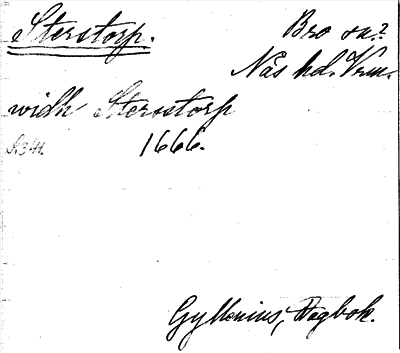 Sterstorp.
Bro sn?
Näs hd. Vrm.
widh Sterstorp
1666.
Gyllenius, Dagbok.